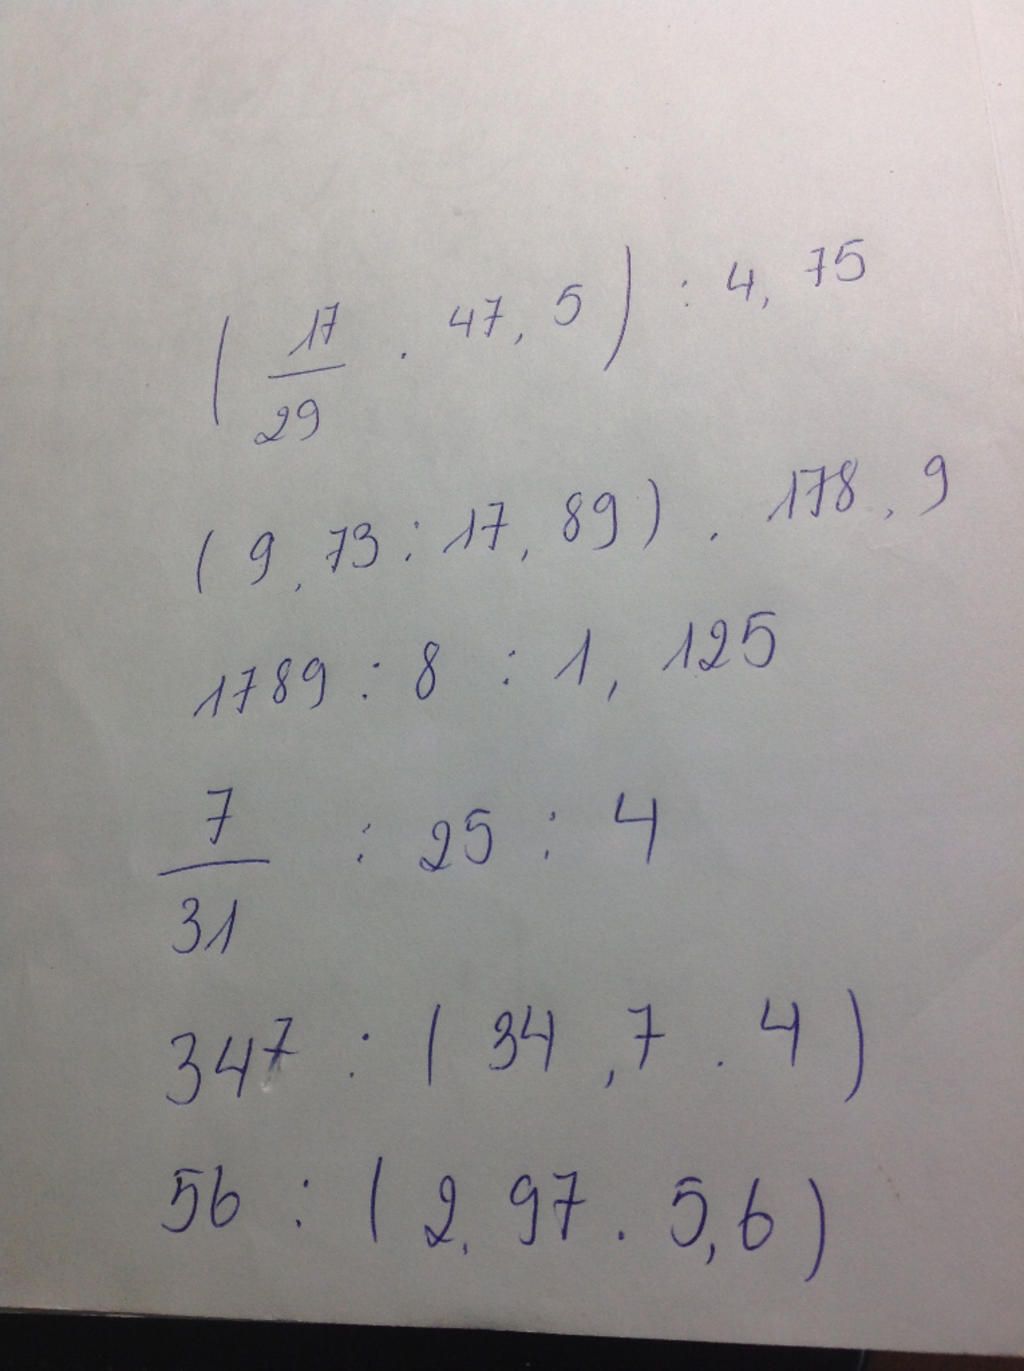 ( 17/29 . 47,5 ) : 4,75
( 9,73 : 17,89 ) . 178,9
1789 : 8 : 1,125
7/31 : 25 : 4
347 : ( 34,7 . 4 )
56 : ( 2,97 . 5,6 )